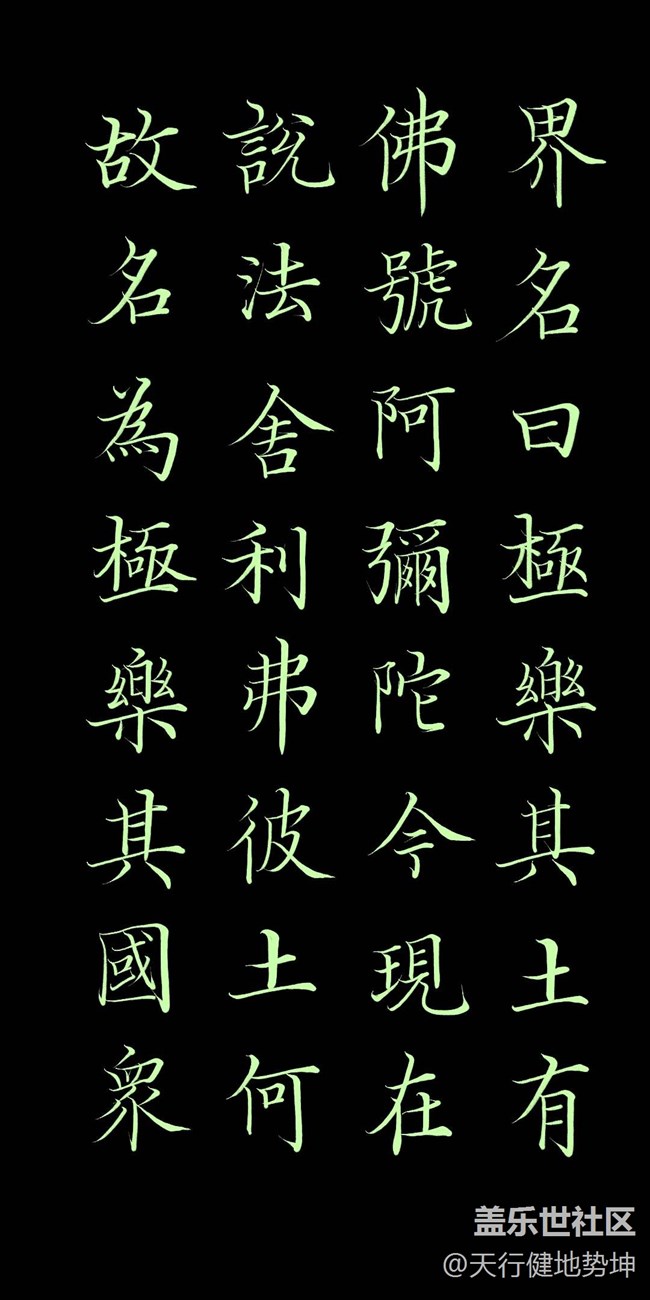 界名曰極樂其土有
佛號阿彌陀今現在
說法舍利弗彼土何
故名為極樂其國眾
盖乐世社区
@天行健地势坤